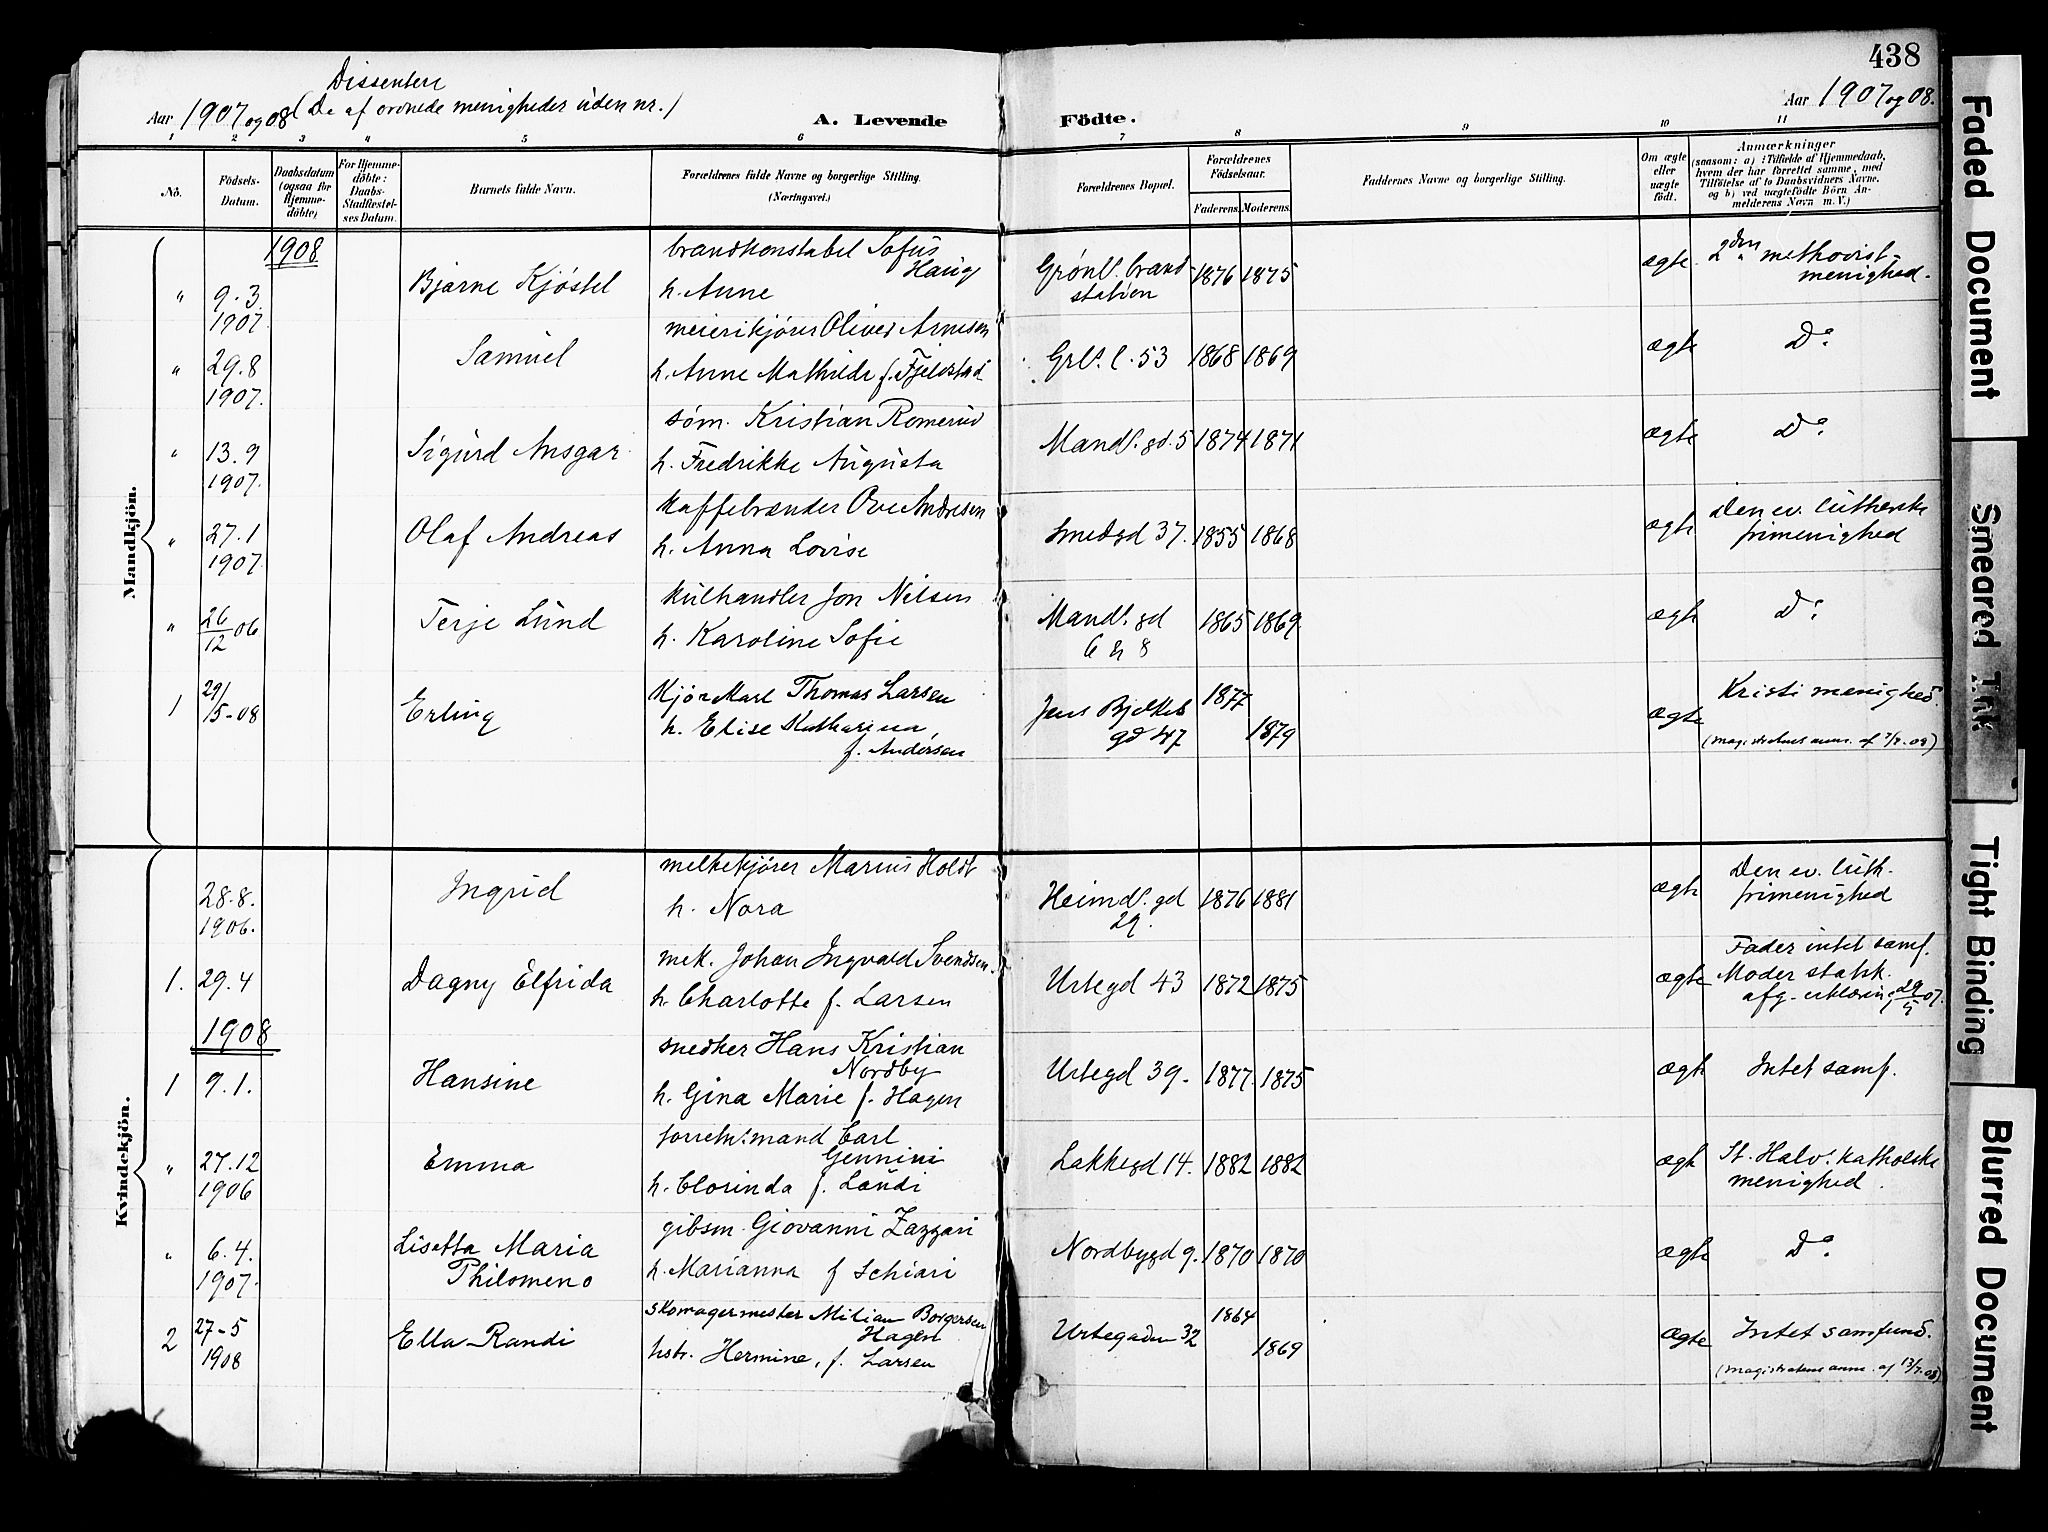 438
Dissentere
Aar 1907 og 08 (De af ordnede menigheder uden nr.)
A. Levende
Födte.
Aar 1907 og 08.
1 2 3 4 5 6 7 8 9 10 11
No.
Födsels-Datum.
Daabsdatum (ogsaa for Hjemme-döbte)
For Hjemme-döbte: Daabs-Stadfæstel-ses Datum.
Barnets fulde Navn.
Forældrenes fulde Navne og borgerlige Stilling.
(Næringsvei.)
Forældrenes Bopæl.
Forældrenes Födselsaar.
Faderens. Moderens.
Faddernes Navne og borgerlige Stilling.
Om ægte eller uægte födt.
Anmærkninger
(saasom: a) Tilfælde af Hjemmedaab, hvem der har forrettet samme, med Tilföielse af to Daabsvidners Navne. og b) ved uægtefödte Börn Anmelderens Navn m. V.)
Mandkjön.
1908
" 9.3. 1907 Bjarne Kjöstel brandkonstabel Sofus Haug
h. Anne
Grønl. brandstation 1876 1875 ægte 2den methodistmenighed.
" 29.8 1907. Samuel meierikjører Oliver Arnesen
h. Anne Mathilde f. Fjeldstad
Grl. l. 53 1868 1869 ægte Do
" 13.9 1907. Sigurd Ansgar søm. Kristian Romerud
h. Fredrikke Augusta
Mandl. gd. 5 1874 1871 ægte Do
" 27.1 1907. Olaf Andreas Kaffebrænder Ove Andresen
h. Anna Lovise
Smedgd 37. 1855 1868 ægte Den ev. lutherske frimenighed
" 26/12 06 Terje Lund Kulhandler Jon Nilsen
h. Karoline Sofie
Mandl. gd 6 & 8 1865 1869 ægte Do
1 29/5-08 Erling Kjørekarl Thomas Larsen
h. Elise Katharina, f. Andersen
Jens Bjelkes gd 47 1877 1879 ægte Kristi menighed.
(Magistratens anm. af 7/7.08)
Kvindekjön.
28.8. 1906. Ingrid melkekjører Marius Holdt
h. Nora
Heimd. gd 29. 1876 1881 ægte Den ev. luth. frimenighed
1. 29.4 Dagny Elfrida mek. Johan Ingvald Svendsen.
h. Charlotte f. Larsen
Urtegd 43 1872 1875 ægte Fader intet samf. Moder statsk. afg. erklæring 29/5 07.
1908
1 9.1. Hansine snedker Hans Kristian Nordby
h. Gina Marie f. Hagen
Urtegd 39. 1877. 1875 ægte Intet samf.
" 27.12 1906 Emma forretn.mand Carl Gennini
h. Clorinda f. Landi
Lakkegd 14. 1882 1882 ægte St. Halv. katholske menighed.
" 6.4. 1907. Lisetta Maria Philomeno gibsm. Giovanni Zazzari
h. Marianna f Schiari
Nordbygd 9. 1870 1870 ægte Do
2 27-5 1908 Ella Randi Skomagermester Milian Borgersen Hagen
hstr. Hermine, f. Larsen
Urtegaden 32 1864 1869 ægte Intet samfund.
(Magistratens anm. af 13/7.08)
Faded Document
Smeared Ink
Tight Binding
Blurred Document